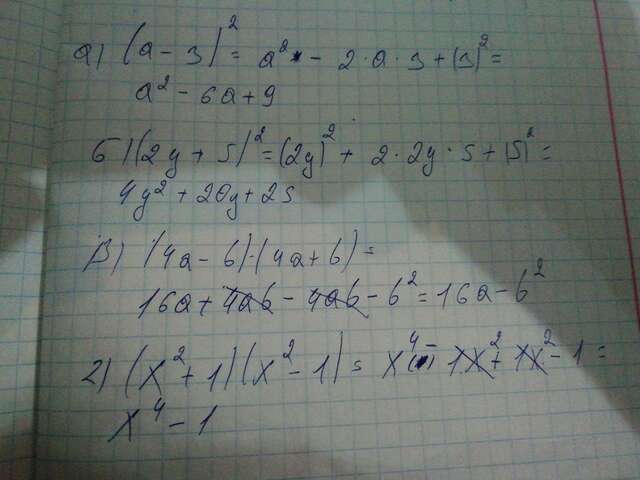 а) (a - 3)² = a² - 2 · a · 3 + (3)² =
a² - 6a + 9
б) (2y + 5)² = (2y)² + 2 · 2y · 5 + (5)² =
4y² + 20y + 25
в) (4a - b) · (4a + b) =
16a + 4ab - 4ab - b² = 16a - b²
г) (x² + 1)(x² - 1) = x⁴ - 1x² + 1x² - 1 =
x⁴ - 1